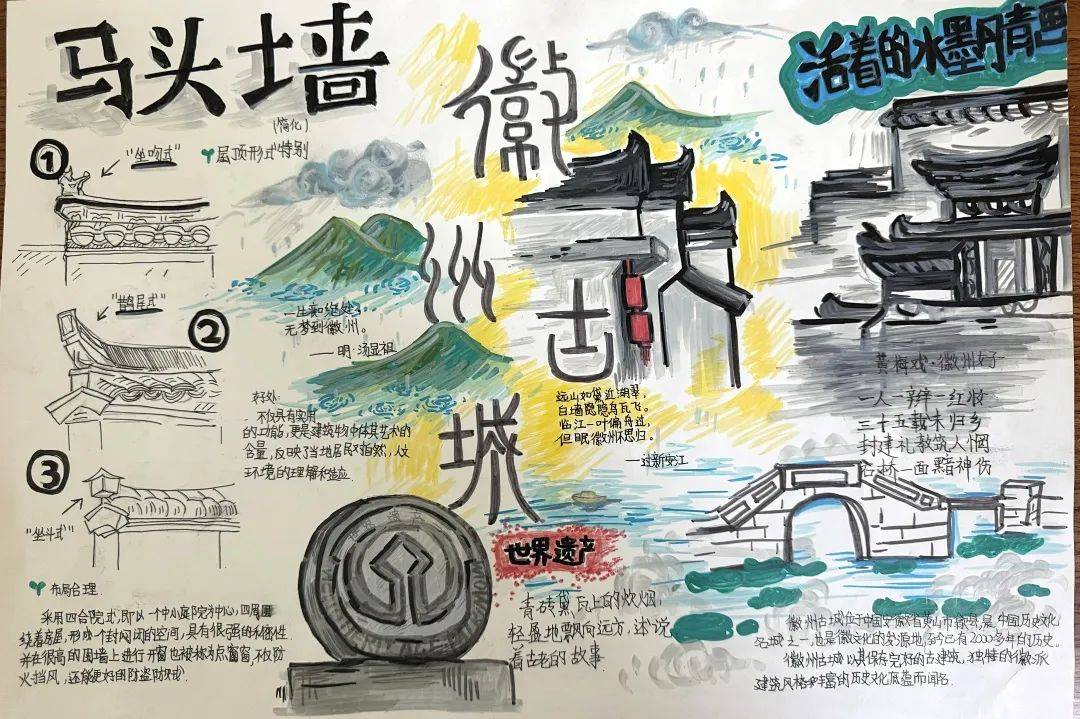 马头墙
(简化)
屋顶形式特别
①
"坐吻式"
②
"鹊尾式"
③
"坐斗式"
徽州古城
活着的水墨丹青画
一生痴绝处,
无梦到徽州。
——明·汤显祖
好处:
不仅具有实用
的功能,更是建筑物中体其艺术的
含量,反映了当地居民对自然,人文
环境的理解和适应.
布局合理.
采用四合院式,即以一个中心庭院为中心,四周围
绕着房屋,形成一个封闭的空间,具有很强的私密性
并在很高的围墙上进行开窗也被称为点窗窗,不仅防
火挡风,还能更好的防盗防贼)
远山如黛近湖翠,
白墙隐隐乌瓦飞。
临江一叶偏舟过,
但眠徽州不思归。
——过新安江
黄梅戏·徽州女子
一人一辫一红妆
三十五载未归乡
封建礼教筑人烟
古桥一面黯神伤
世界遗产
青砖黛瓦上的炊烟,
轻盈地飘向远方,述说
着古老的故事.
徽州古城位于中国安徽省黄山市歙县,是中国历史文化
名城之一,也是徽文化的发源地,至今已有2000多年的历史。
徽州古城以其保存完好的古建筑,独特的徽派
建筑风格和丰富的历史文化底蕴而闻名.